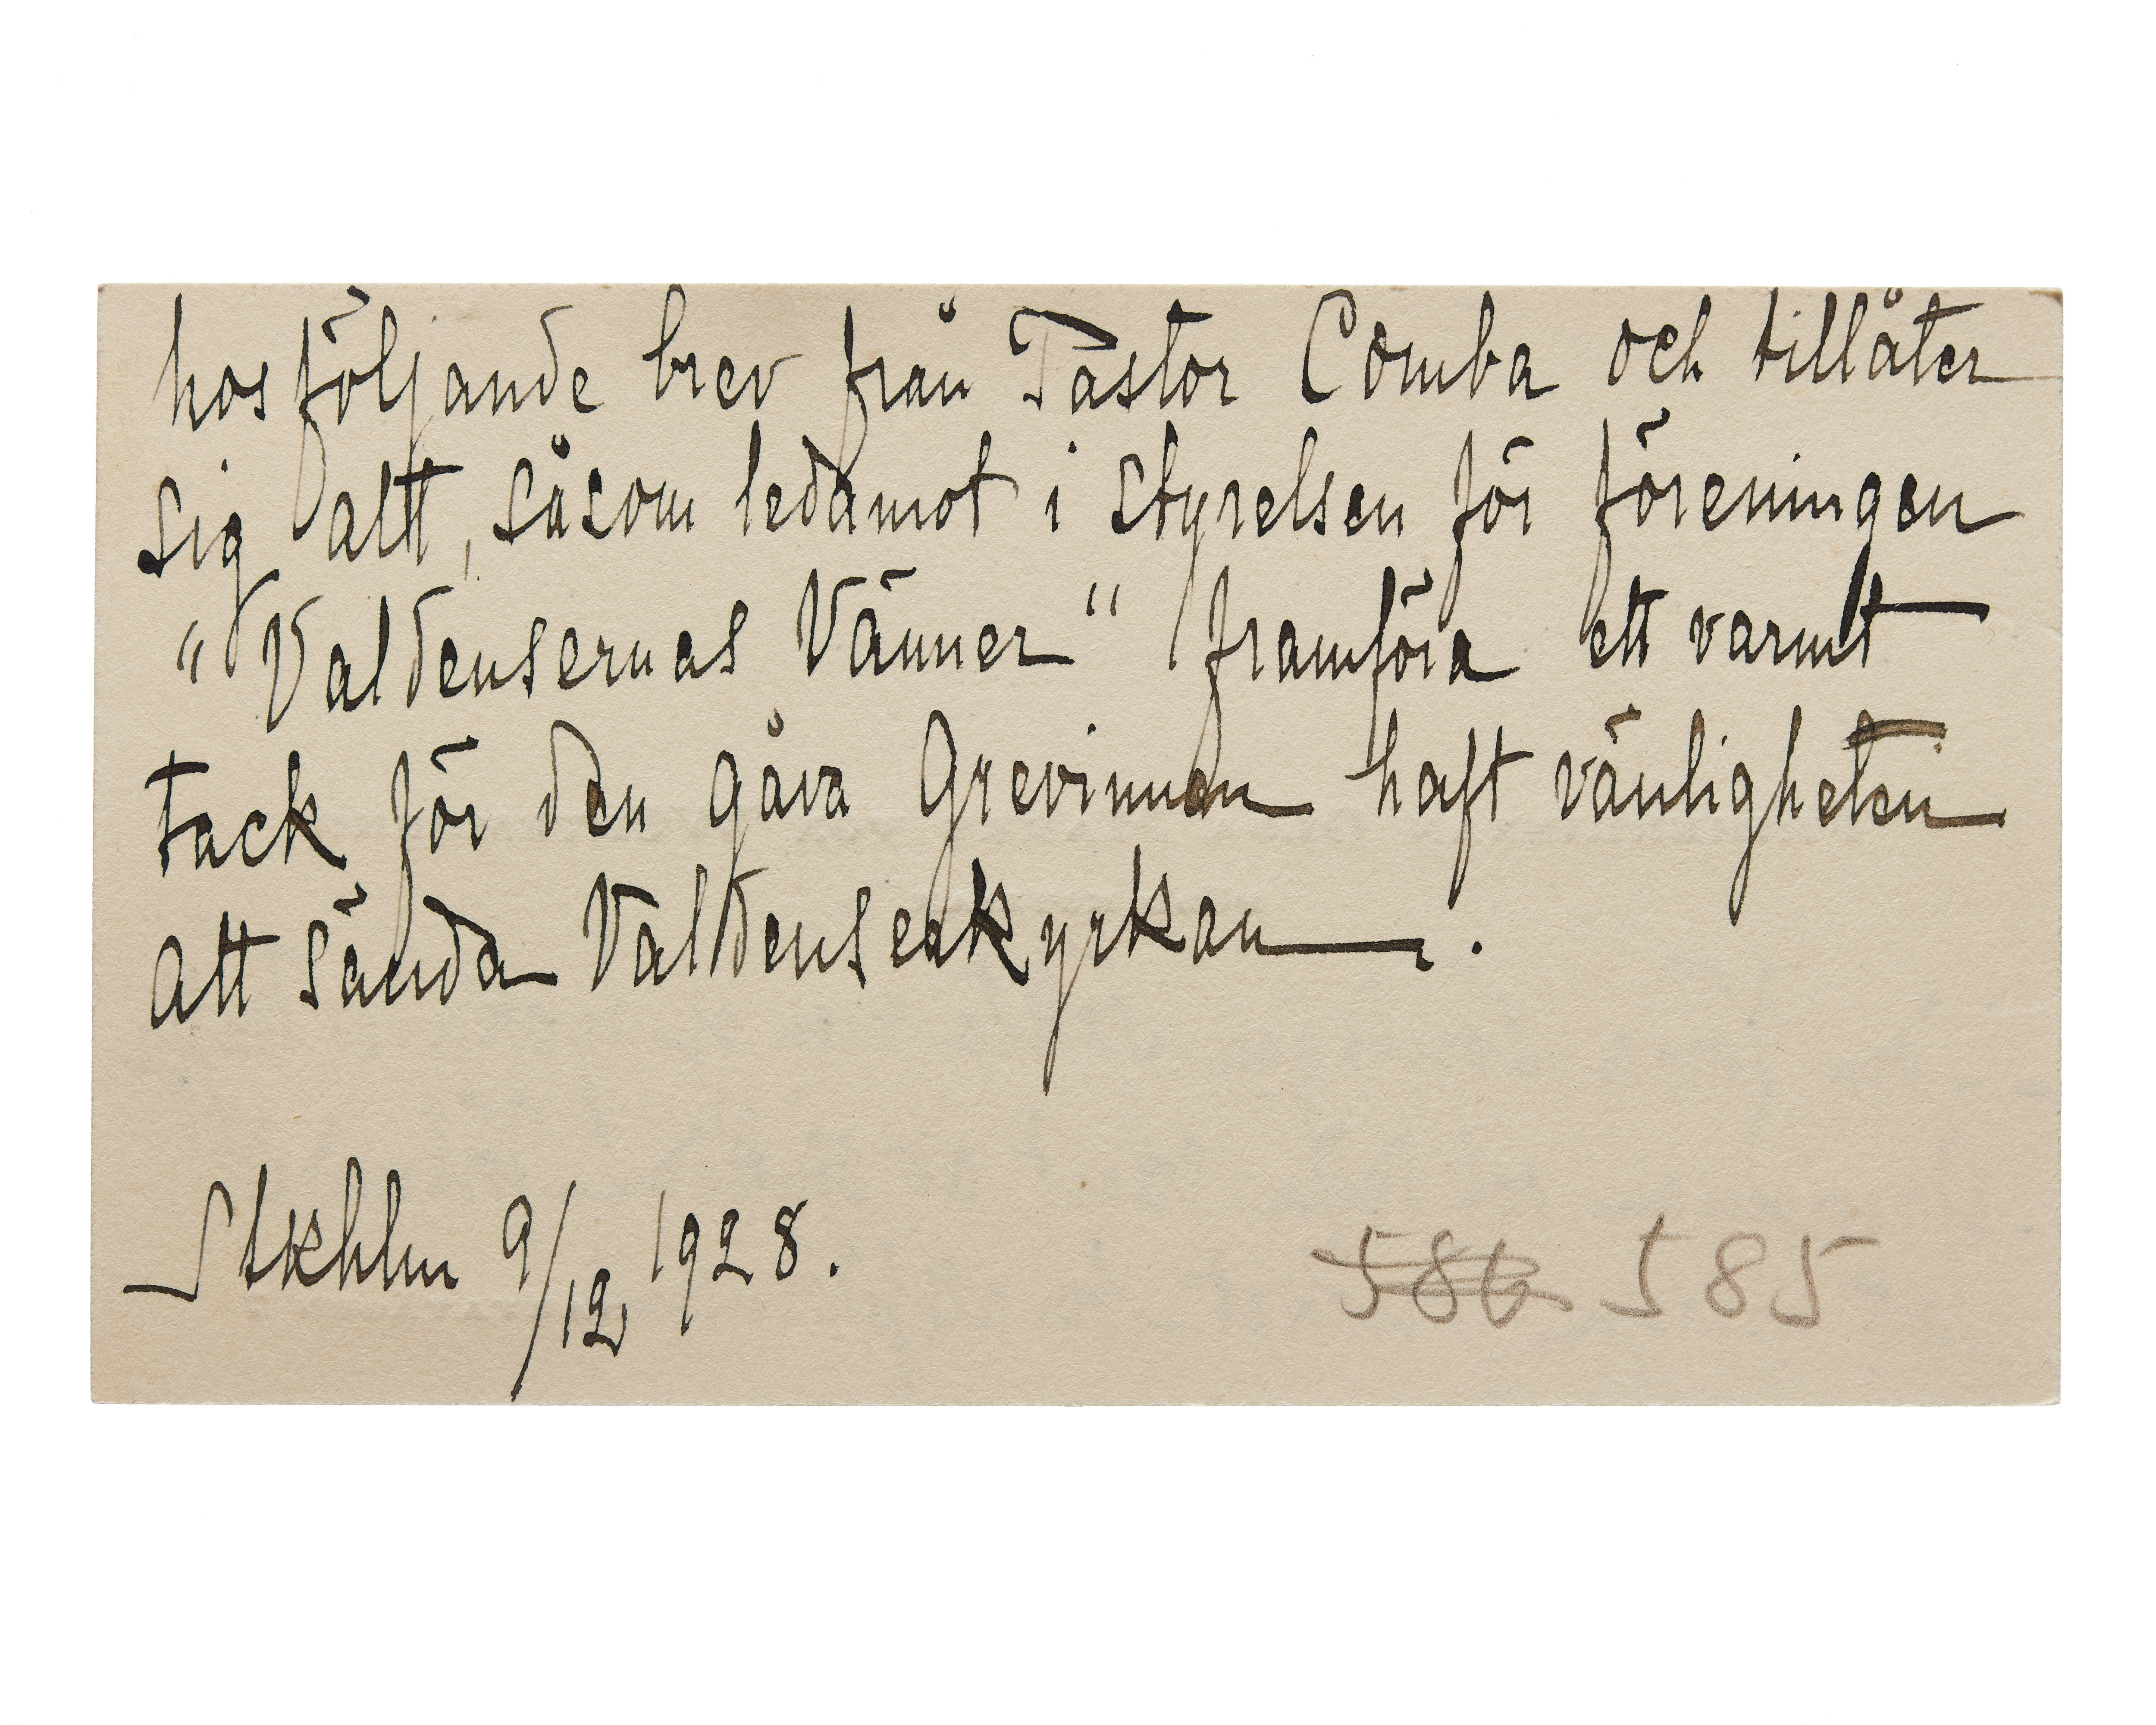 hosföljande brev från Pastor Comba och tillåter
sig att, såsom ledamot i styrelsen för föreningen
"Valdensernas Vänner" framföra ett varmt
tack för den gåva Grevinnan haft vänligheten
att sända Valdenserkyrkan.
Stkhlm 9/12 1928.
586 585